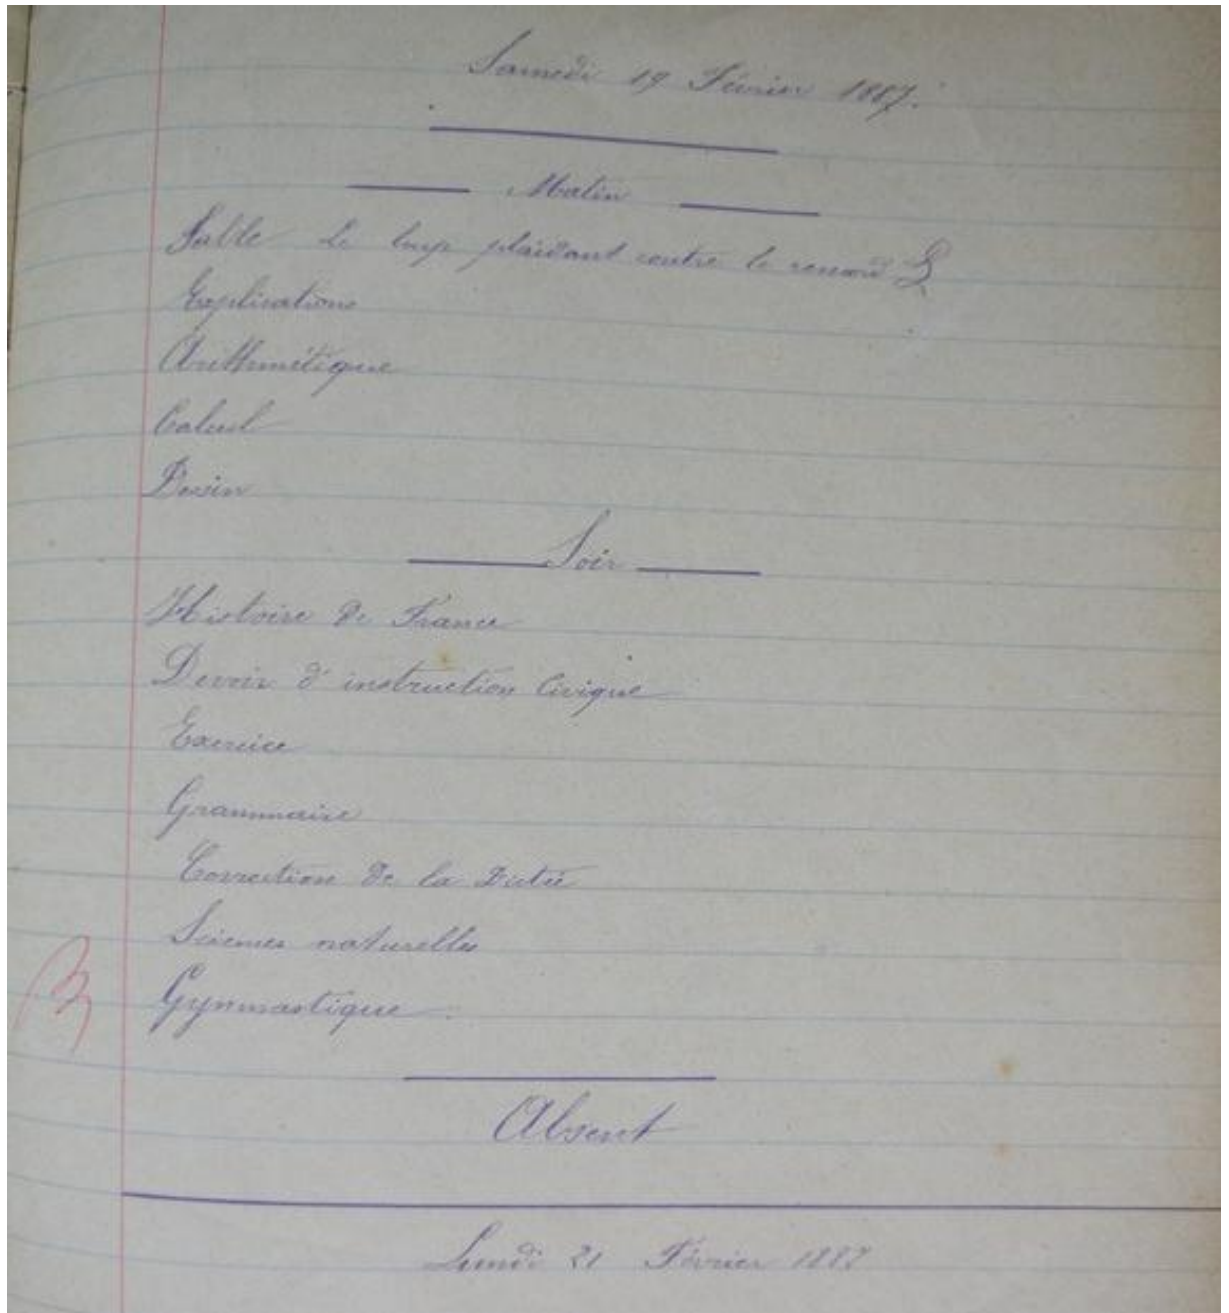 Samedi 19 Février 1887.
Matin
Fable Le loup plaidant contre le renard
Explications
Arithmétique
Calcul
Dessin
Soir
Histoire de France
Devoir d'instruction Civique
Exercice
Grammaire
Correction de la Dictée
Sciences naturelles
Gymnastique.
Absent
Lundi 21 Février 1887